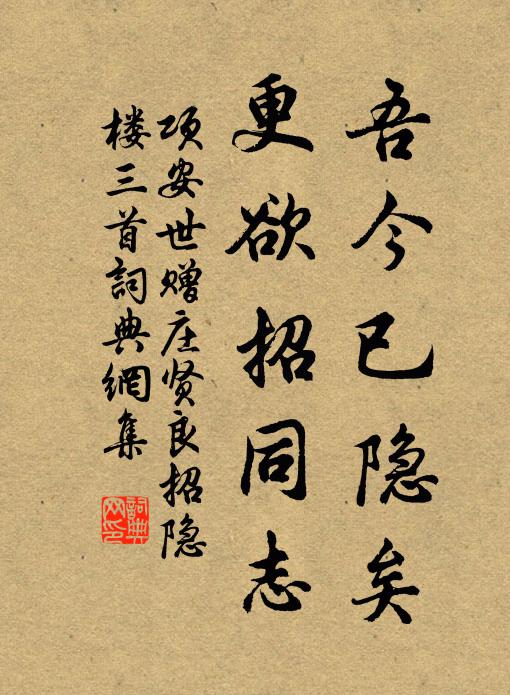 吾今已隐矣
更欲招同志
项安世赠庄贤良招隐
楼三首詞典網集
詞典
网印